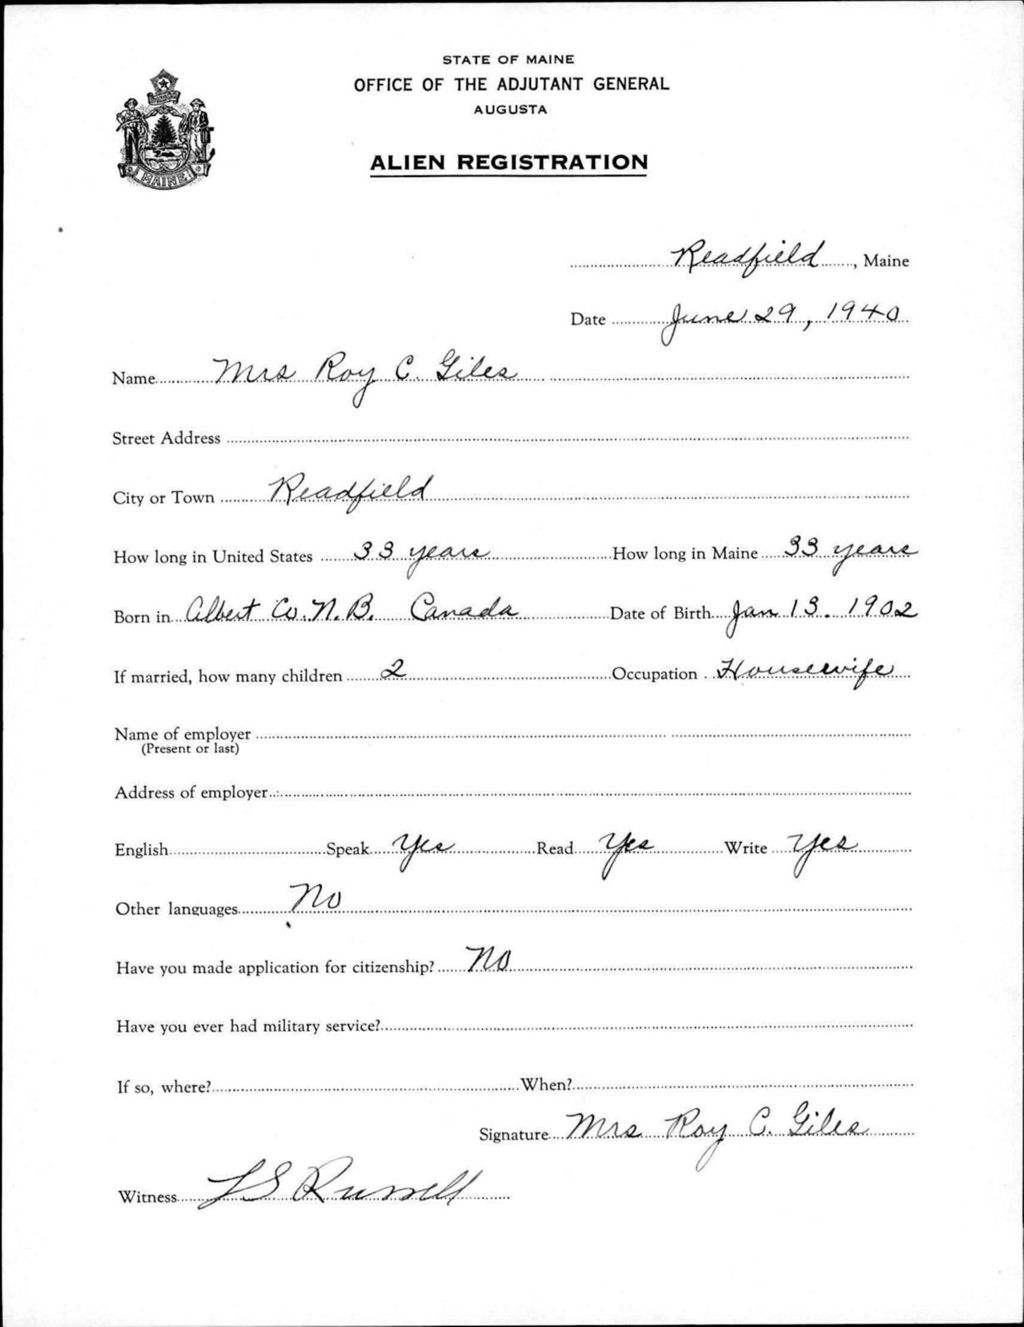 STATE OF MAINE
OFFICE OF THE ADJUTANT GENERAL
AUGUSTA
ALIEN REGISTRATION
MAINE
Readfield, Maine
Date June 29, 1940
Name Mrs Roy C. Giles
Street Address
City or Town Readfield
How long in United States 33 years How long in Maine 33 years
Born in Albert Co. N.B. Canada Date of Birth Jan 13. 1902
If married, how many children 2 Occupation Housewife
Name of employer
(Present or last)
Address of employer
English Speak Yes Read Yes Write Yes
Other languages No
Have you made application for citizenship? No
Have you ever had military service?
If so, where? When?
Signature Mrs Roy C. Giles
Witness L S Russell